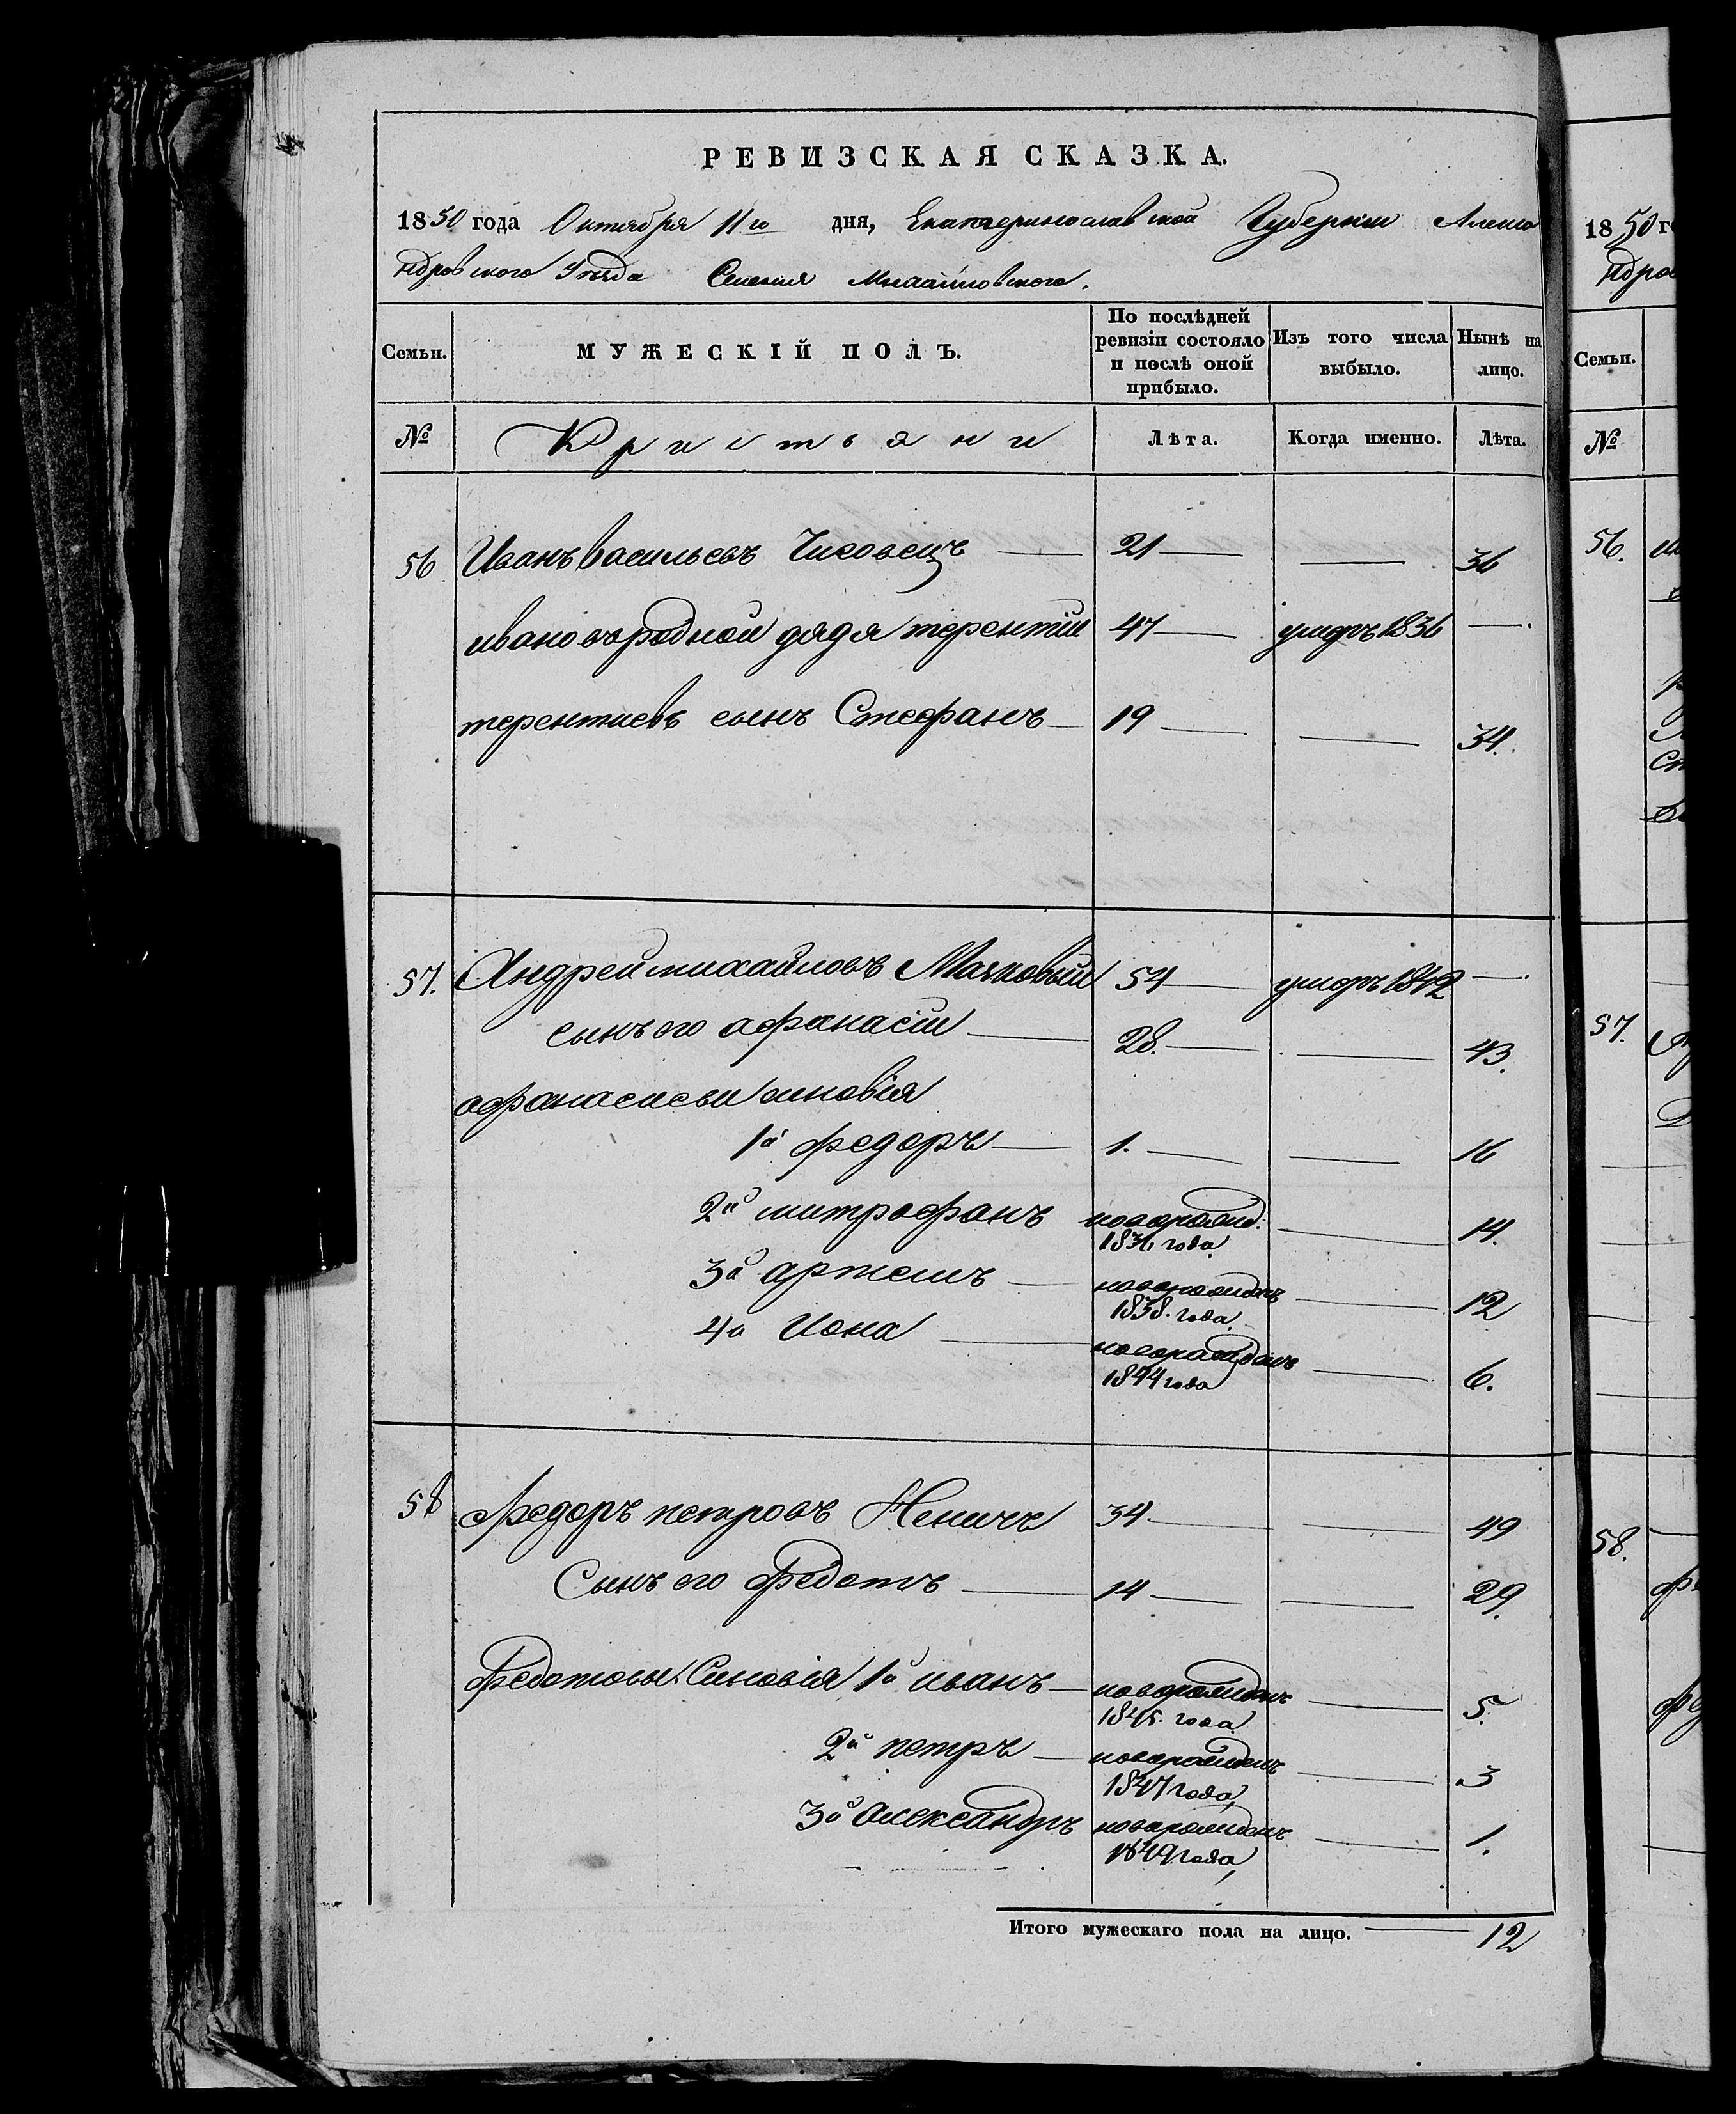 РЕВИЗСКАЯ СКАЗКА.
1850 года Октября 11го дня, Екатеринославской Губернии Алекса
ндровского Уезда Селения Михайловского.
Семьи. МУЖЕСКІЙ ПОЛЪ. По послѣдней ревизіи состояло и послѣ оной прибыло. Изъ того числа выбыло. Нынѣ на лицо.
№ Кристьяни Лѣта. Когда именно. Лѣта.
56 Иванъ васильевъ 21 36
ивано вородной дядя терентіи 47 умиръ 1836
терентиевъ сынъ Стефанъ 19 34.
57. Андрей михайловъ Маяковыи 54 умиръ 1842
сынъ его афанасіи 28. 43.
афанасиевы синовія
1й федоръ 1. 16
2й митрофанъ новорожд: 1836 года 14.
3й артемъ новорожденъ 1838. года 12
4й Иона новорожденъ 1844 года 6.
58 Федоръ петровъ Неничъ 34. 49
Сынъ его Федотъ 14 29.
Федотовы Синовія 1й иванъ новорожденъ 1845. года 5.
2й петръ новорожденъ 1847 года 3
3й Александръ новорожденъ 1849 года 1.
Итого мужескаго пола на лицо. 12
1850 г
ндров
Семьи.
№
56.
57.
58.